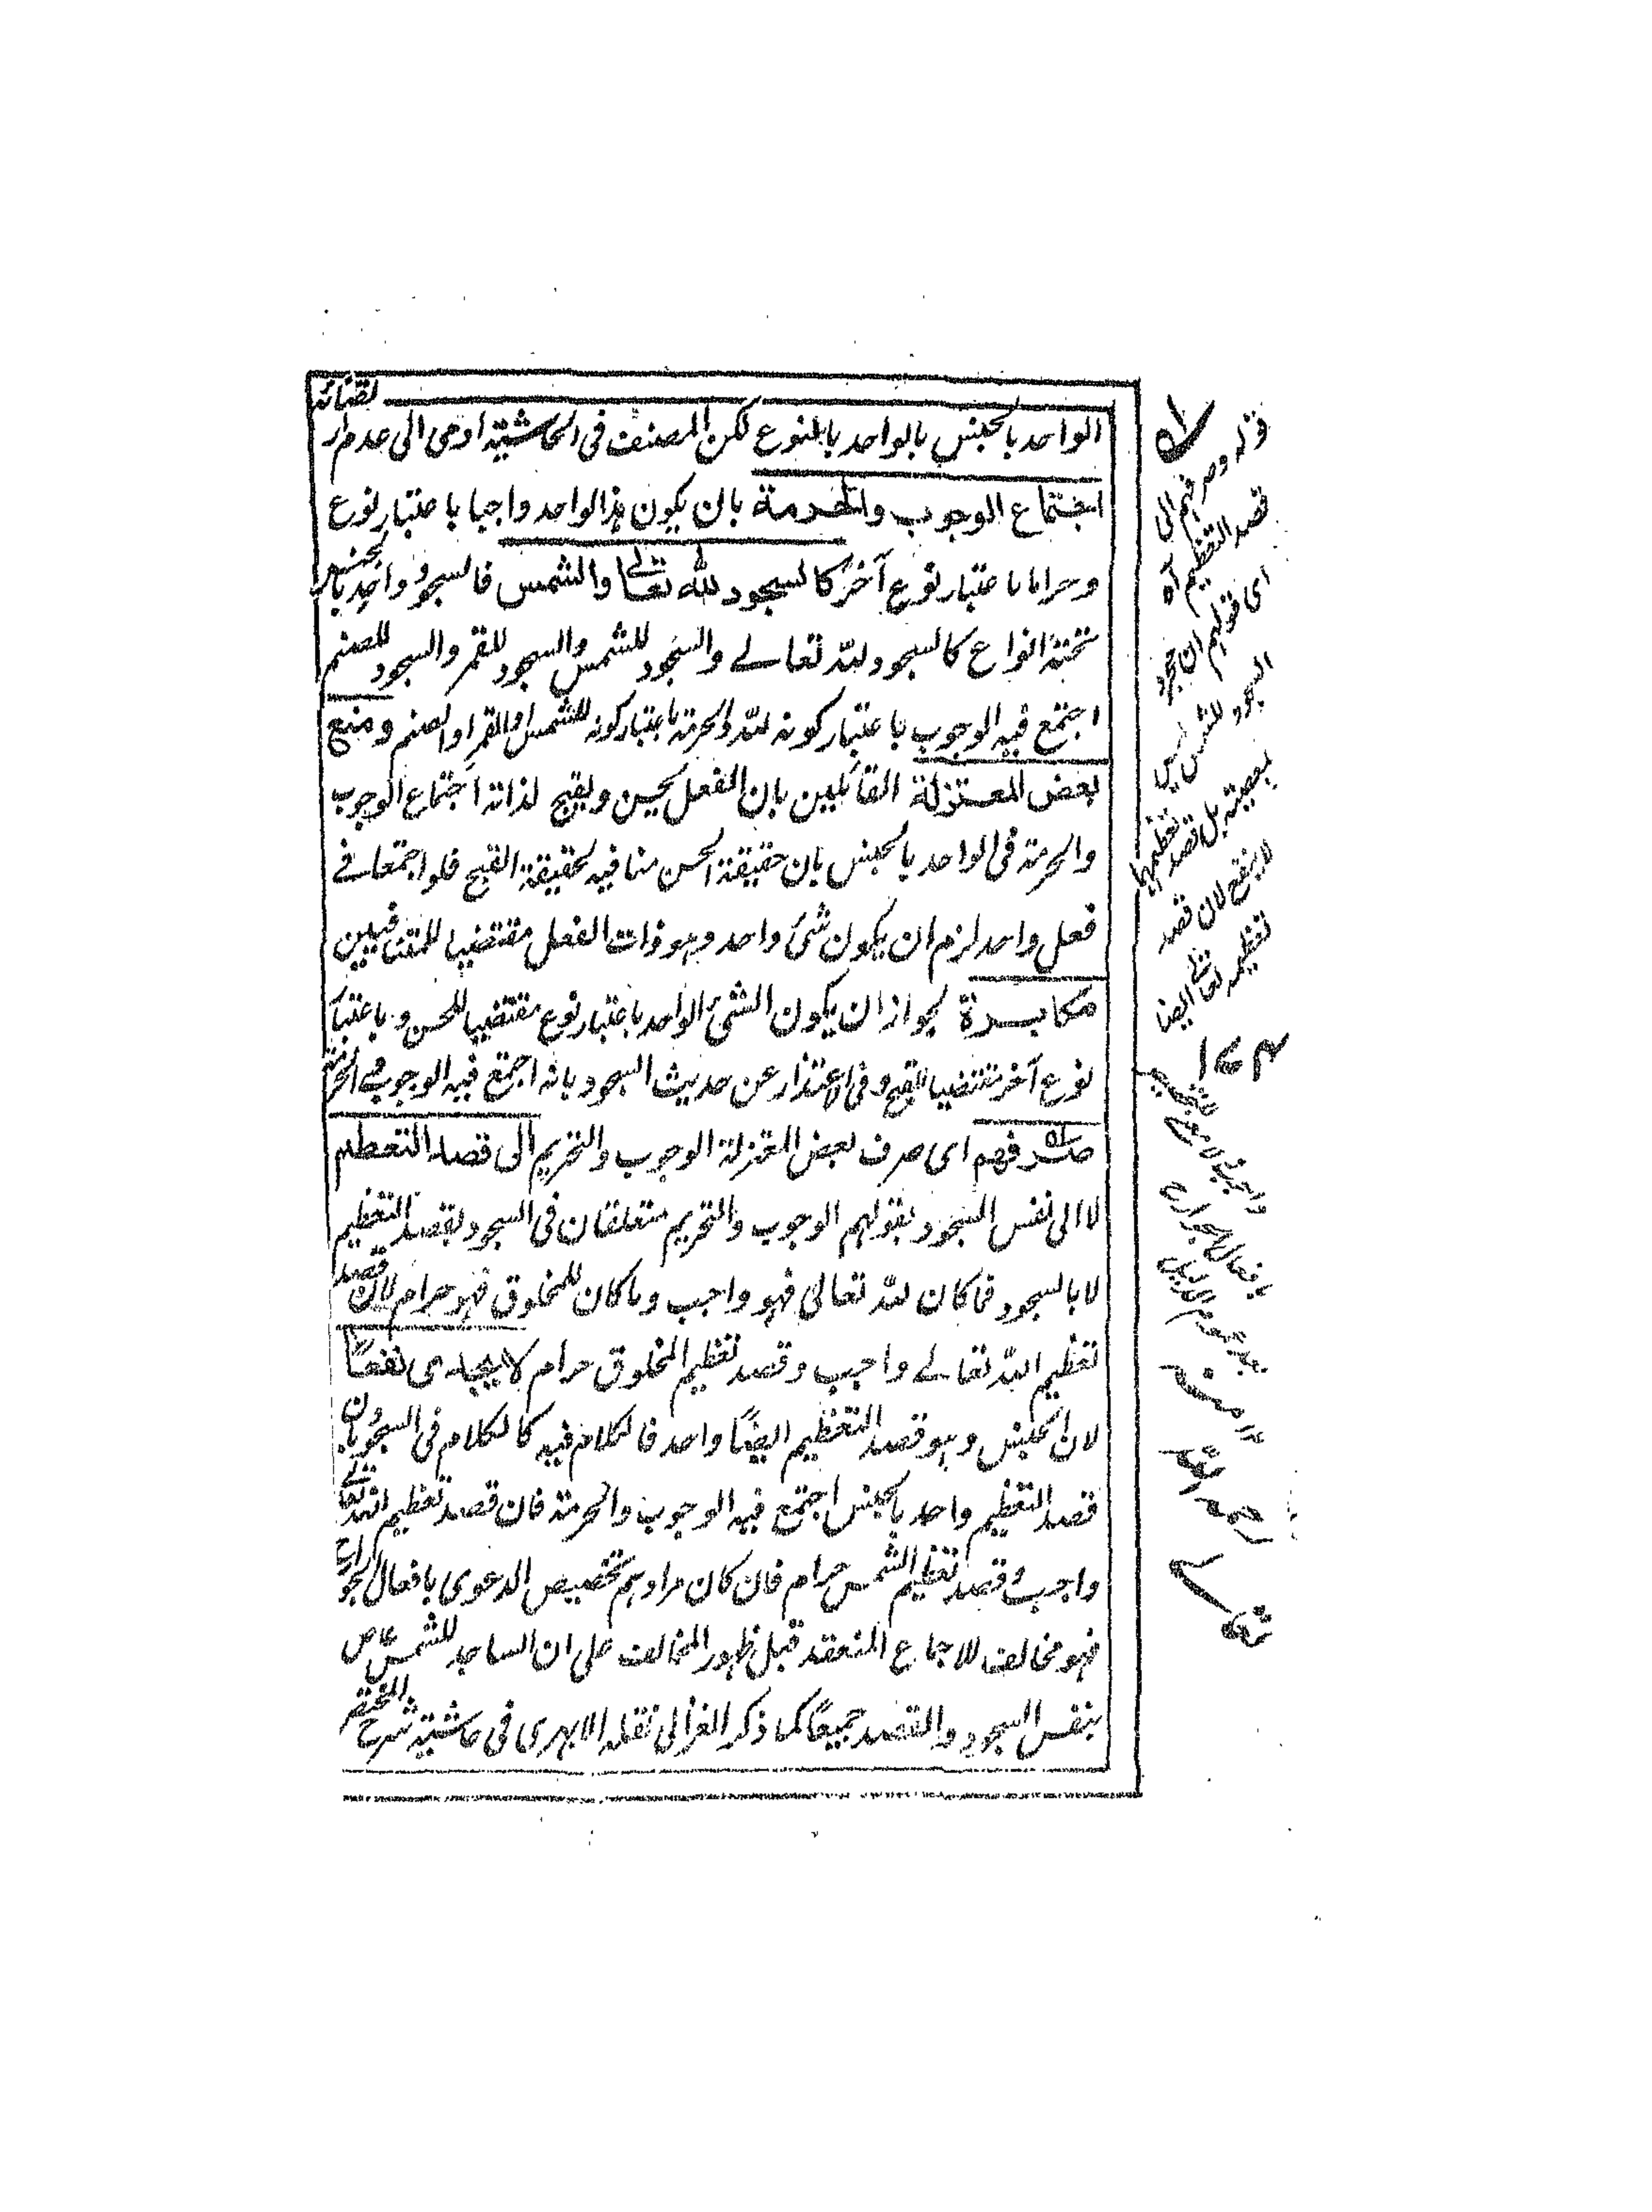 الواحد بالجنس بالواحد بالنوع لكن المصنف فى الحاشية اومى الى عدم ار تضائه
اجتماع الوجوب والحرمة بان يكون هذا الواحد واجبا باعتبار نوع
وحراما باعتبار نوع آخر كالسجود لله تعالى والشمس فالسجود واحد بالجنس
تحته انواع كالسجود لله تعالے والسجود للشمس والسجود للقمر والسجود للصنم
اجتمع فيه الوجوب باعتبار كونه لله والحرمة باعتبار كونه للشمس او القمر او الصنم ومنع
بعض المعتزلة القائلين بان الفعل يحسن ويقبح لذاته اجتماع الوجوب
والحرمة فى الواحد بالجنس بان حقيقة الحسن منافيه لحقيقة القبح فلو اجتمعا فے
فعل واحد لزم ان يكون شئ واحد وهو ذات الفعل مقتضيا للمتنافيين
مكابرة لجواز ان يكون الشئ الواحد باعتبار نوع مقتضيا للحسن و باعتبار
نوع آخر مقتضيا للقبح وفى الاعتذار عن حديث السجود بانه اجتمع فيه الوجوب مع الحرمة
صرفهم اى صرف بعض المعتزلة الوجوب والتحريم الى قصد التعظيم
لا الى نفس السجود بقولهم الوجوب والتحريم متعلقان فى السجود بقصد التعظيم
لا بالسجود فما كان لله تعالى فهو واجب وما كان للمخلوق فهو حرام لان قصد
تعظيم الله تعالے واجب وقصد تعظيم المخلوق حرام لا يجدى نفعًا
لان الجنس وهو قصد التعظيم ايضًا واحد فالكلام فيه كالكلام فى السجود بان
قصد التعظيم واحد بالجنس اجتمع فيه الوجوب والحرمة فان قصد تعظيم الله تعالے
واجب وقصد تعظيم الشمس حرام فان كان مرادهم تخصيص الدعوى بافعال الجوارح
فهو مخالف للاجماع المنعقد قبل ظهور المخالف على ان الساجد للشمس عاص
بنفس السجود والقصد جميعًا كما ذكر الغزالى نقله الابهرى فى حاشية شرح المختصر
قوله وصرفهم الى
قصد التعظيم آه
اى قولهم ان مجرد
السجود للشمس ليس
بمعصية بل قصد تعظيمها
لا ينفع لان قصد
تعظيمه تعالے ايضا